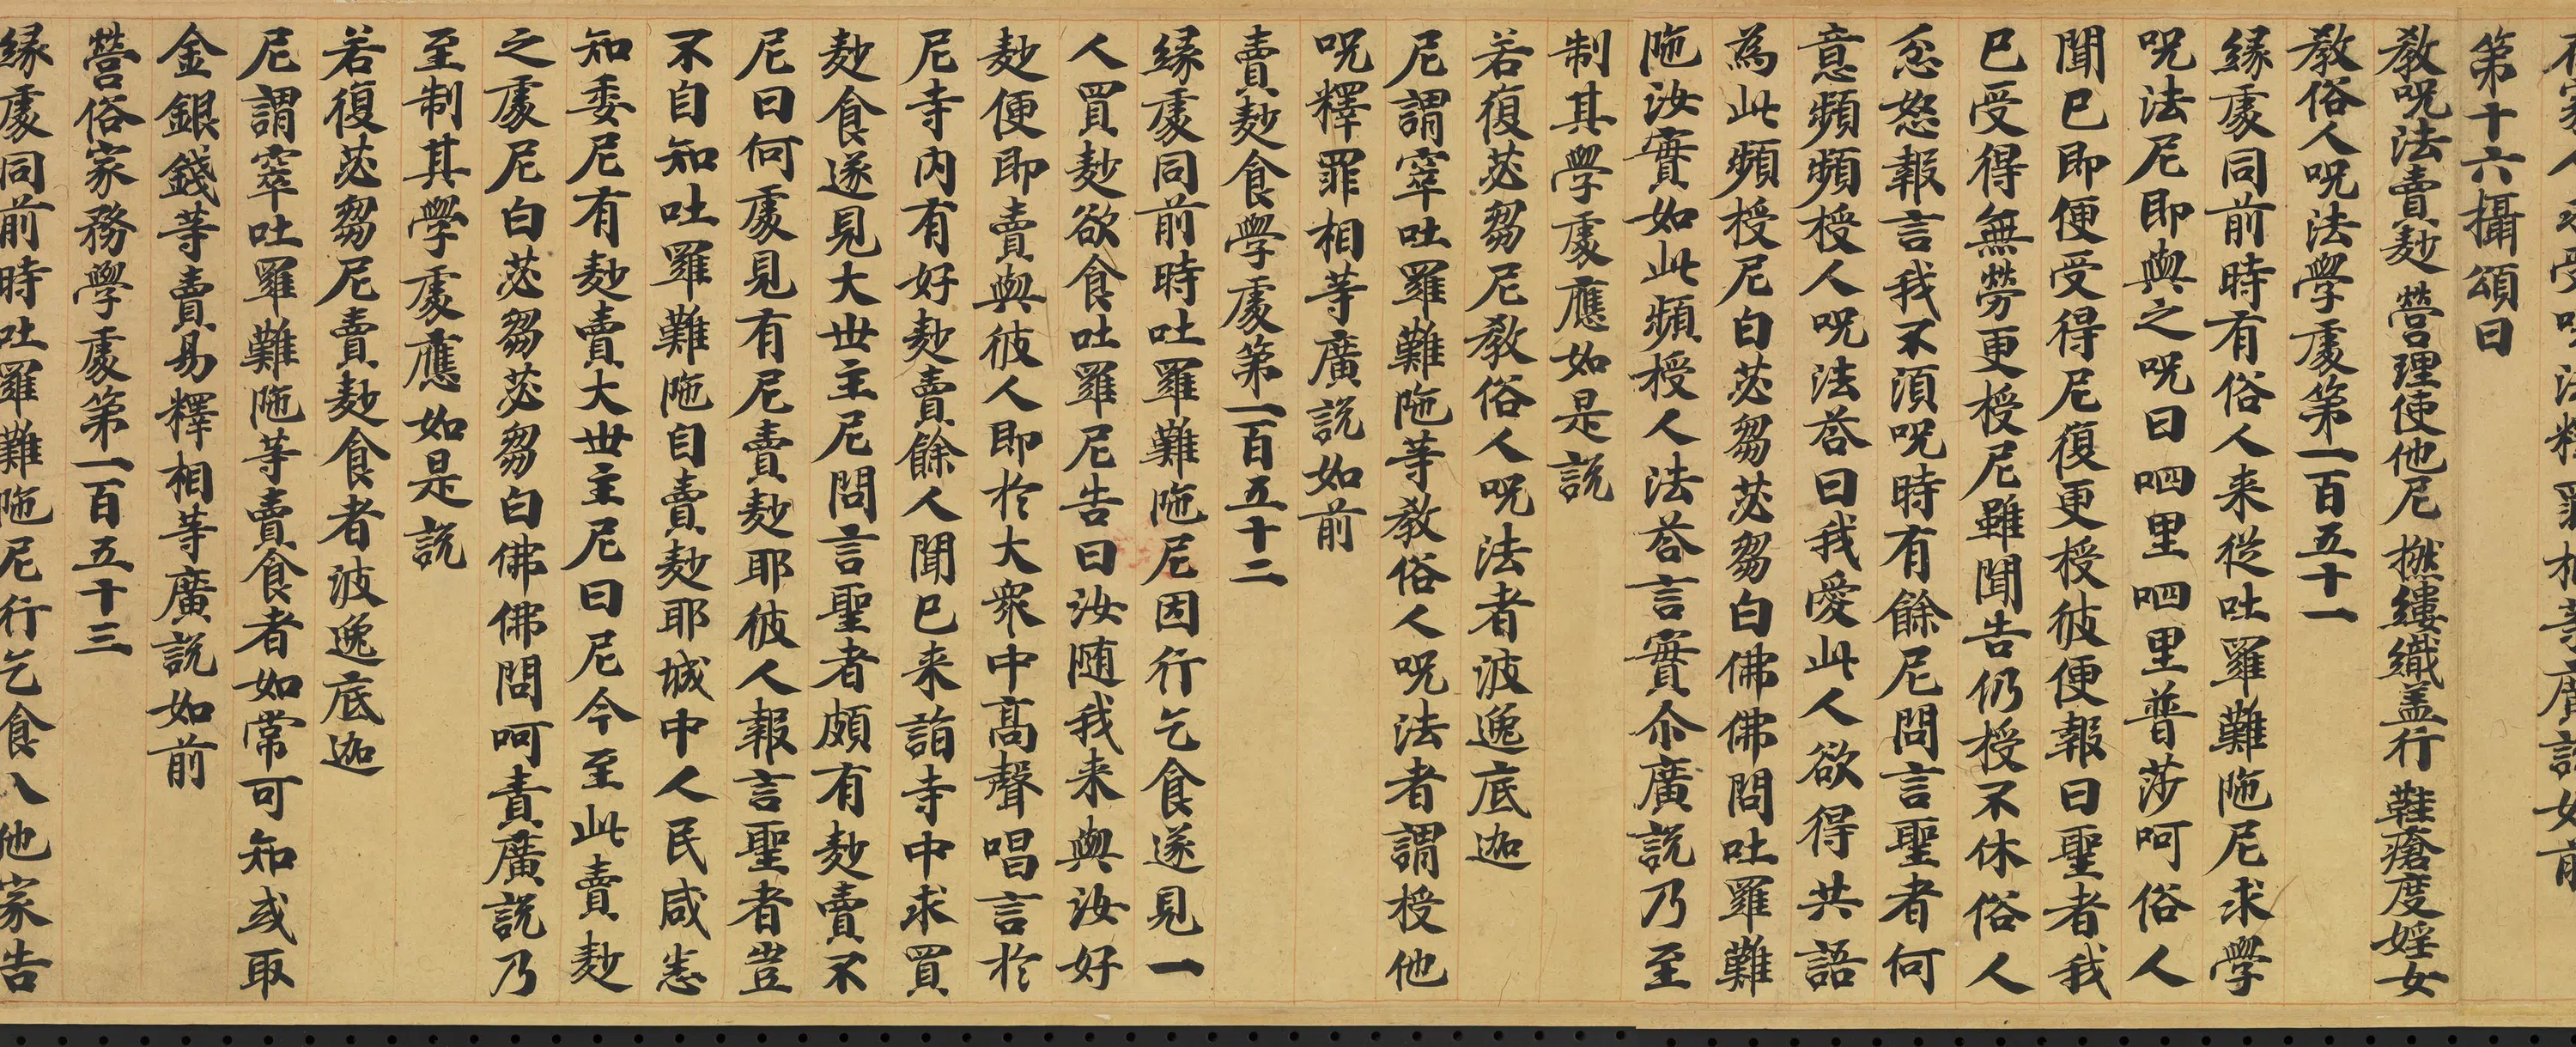 第十六攝頌曰
教呪法賣麨 營理使他尼 撚縷織盖行 鞋瘡度婬女
教俗人呪法學處第一百五十一
緣處同前時有俗人来從吐羅難陁尼求學
呪法尼即與之呪曰呬里呬里普莎呵俗人
聞已即便受得尼復更授彼便報曰聖者我
已受得無勞更授尼雖聞告仍授不休俗人
忿怒報言我不湏呪時有餘尼問言聖者何
意頻頻授人呪法荅曰我愛此人欲得共語
為此頻授尼白苾芻苾芻白佛佛問吐羅難
陁汝實如此頻授人法荅言實尒廣說乃至
制其學處應如是說
若復苾芻尼教俗人呪法者波逸底迦
尼謂窣吐羅難陁等教俗人呪法者謂授他
呪釋罪相等廣說如前
賣麨食學處第一百五十二
緣處同前時吐羅難陁尼因行乞食遂見一
人買麨欲食吐羅尼告曰汝随我来與汝好
麨便即賣與彼人即於大衆中髙聲唱言於
尼寺内有好麨賣餘人聞已来詣寺中求買
麨食遂見大世主尼問言聖者頗有麨賣不
尼曰何處見有尼賣麨耶彼人報言聖者豈
不自知吐羅難陁自賣麨耶城中人民咸悉
知委尼有麨賣大世主尼曰尼今至此賣麨
之處尼白苾芻苾芻白佛佛問呵責廣說乃
至制其學處應如是說
若復苾芻尼賣麨食者波逸底迦
尼謂窣吐羅難陁等賣食者如常可知或取
金銀錢等賣易釋相等廣說如前
營俗家務學處第一百五十三
緣處同前時吐羅難陁尼行乞食入他家告